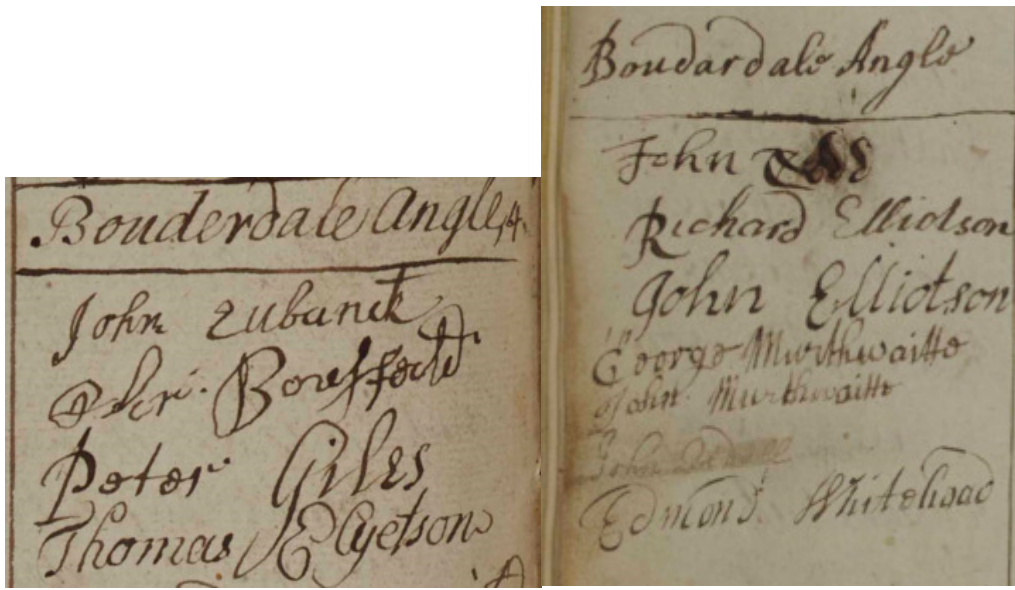 Bouderdale Angle, 4.
John Eubanck
Peter Giles
Thomas Elyetson
Boudardale Angle
John
Richard Elliotson
John Elliotson
George Murthwaitte
John Murthwaitte
John
Edmond Whitehead